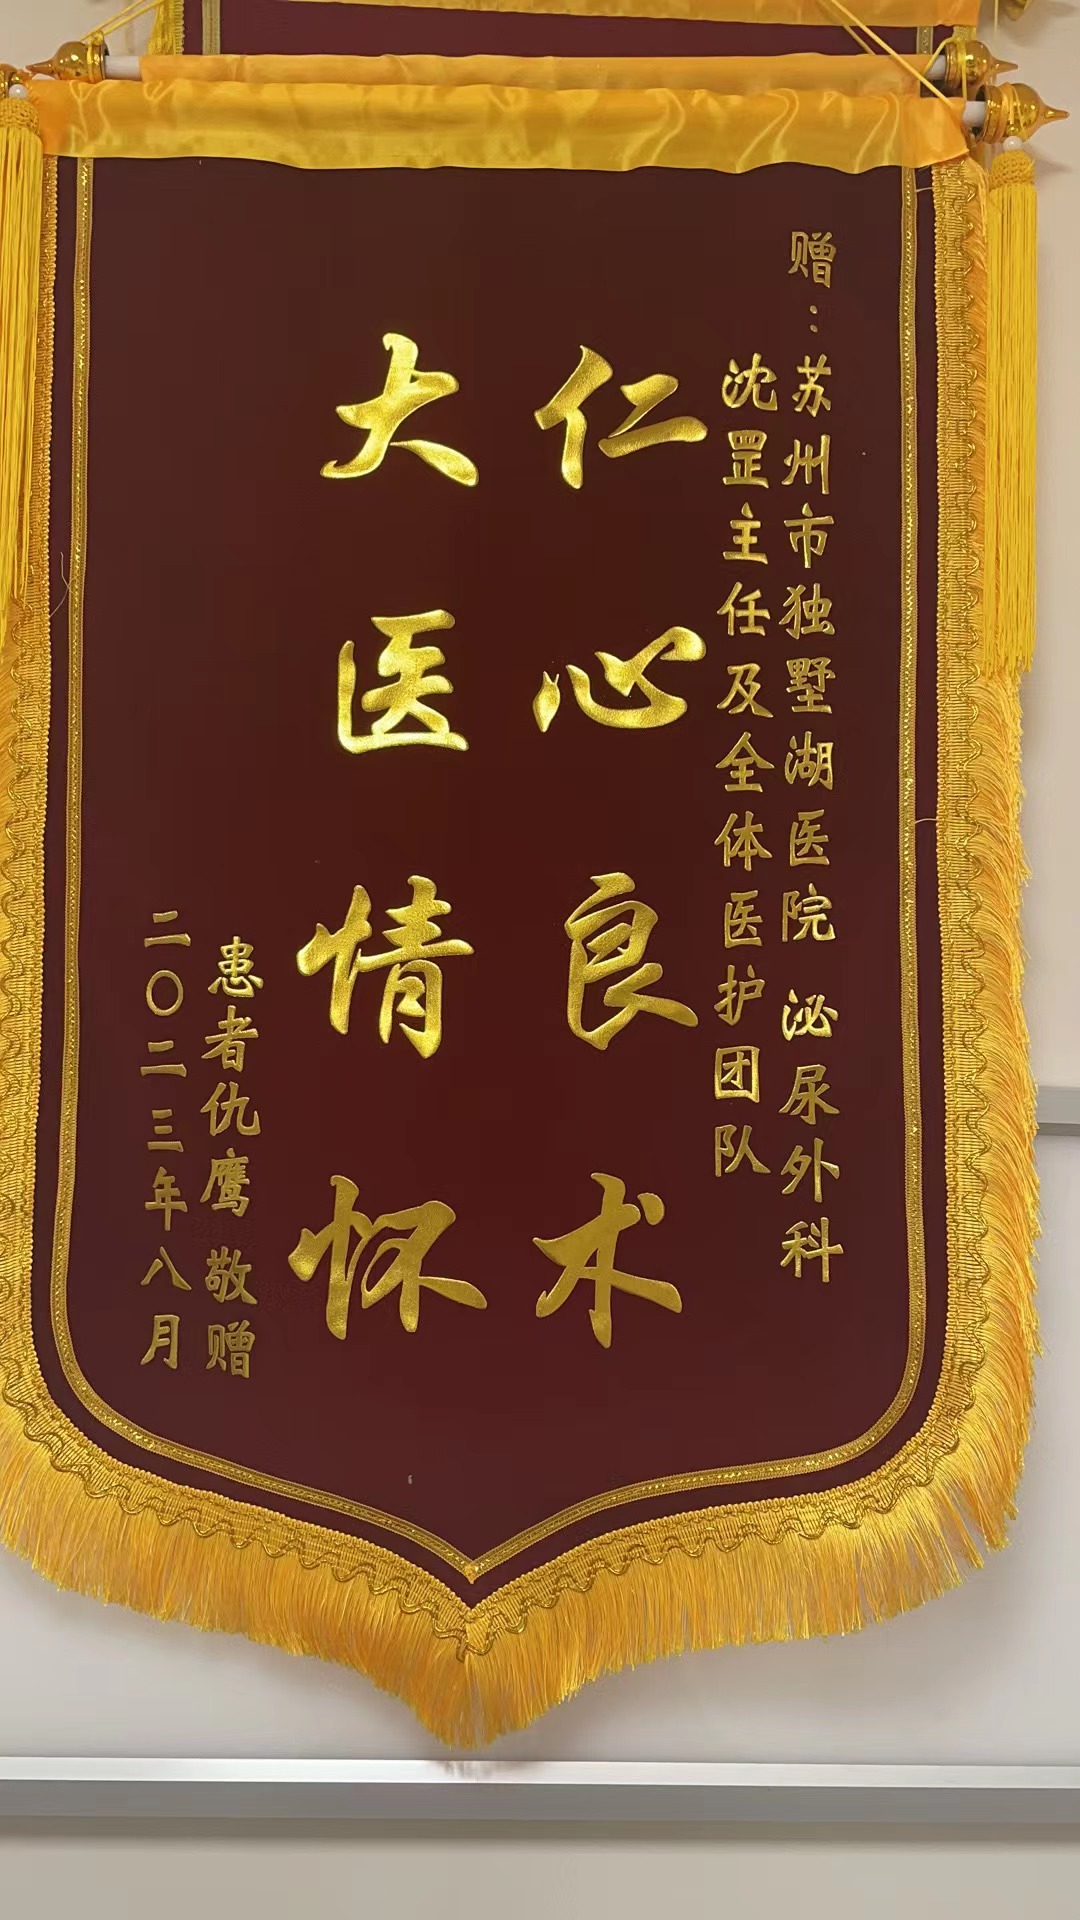 赠：苏州市独墅湖医院 泌尿外科
沈罡主任及全体医护团队
仁心良术
大医情怀
患者仇鹰 敬赠
二〇二三年八月